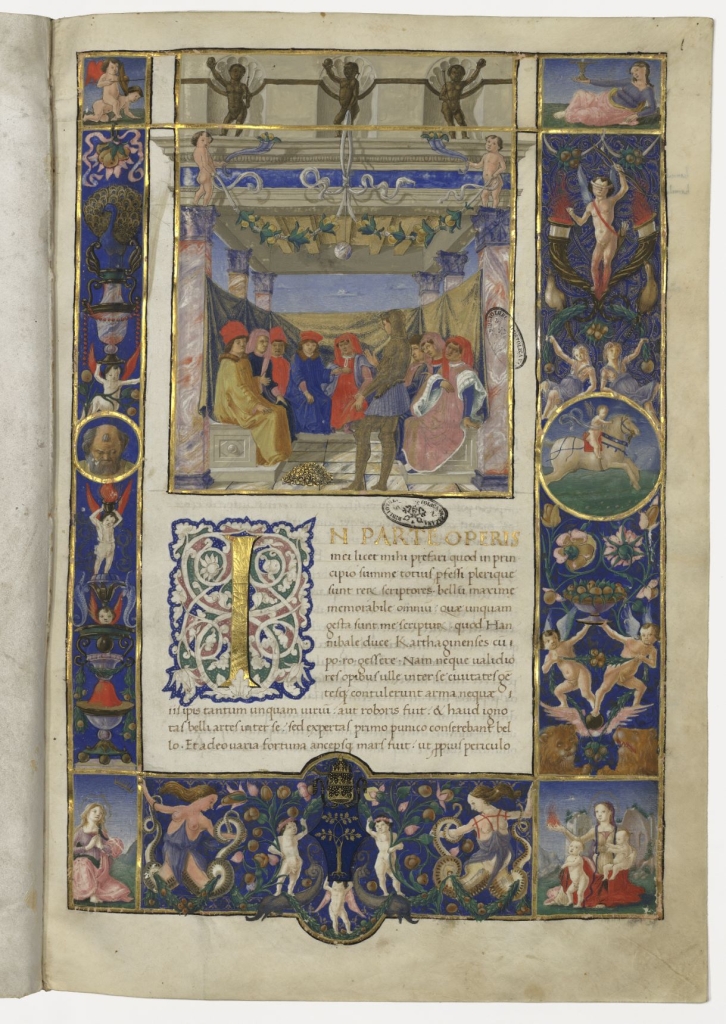 IN PARTE OPERIS
mei licet mihi prefari quod in prin
cipio summe totius pfessi plerique
sunt rerꝝ scriptores bellū maxime
memorabile omniū que unquam
gesta sunt me scripturū quod Han
nibale duce Karthaginenses cū
po.ro. gessere. Nam neque validio
res opibus ulle inter se civitates gē
tesqꝫ contulerunt arma neque
ipsis tantum unquam viriū aut roboris fuit. & haud igno
tas belli artes inter se, sed expertas primo punico conserebant bel
lo. Et adeo varia fortuna ancepsqꝫ mars fuit, ut ppius periculo